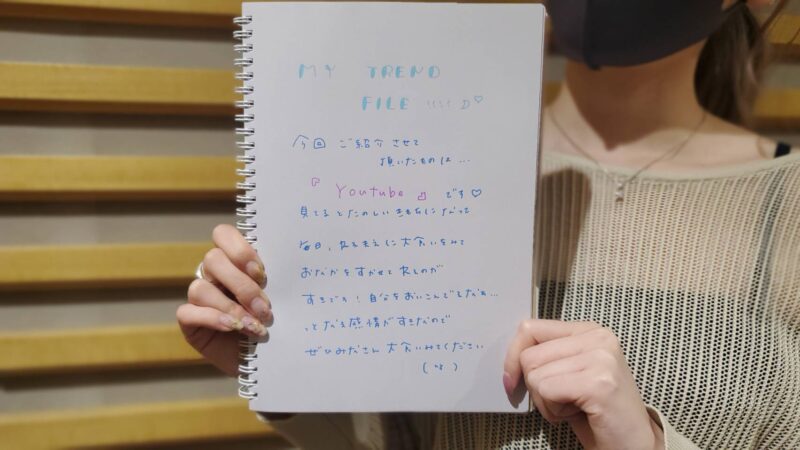 MY TREND
FILE
今回 ご紹介させて
頂いたものは...
『Youtube』です♡
見てるとたのしいきもちになって
毎日、ねるまえに大食いをみて
おなかをすかせてねるのが
すきです！自分をおいこんでるなぁ...
ってなる感情がすきなので
ぜひみなさん大食いみてください
(笑)